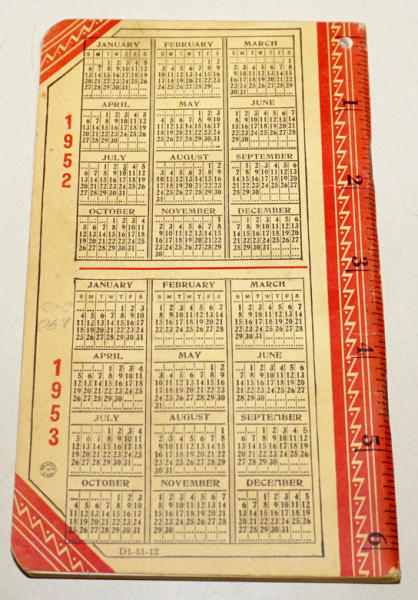 1952
JANUARY
S M T W T F S
1 2 3 4 5
6 7 8 9 10 11 12
13 14 15 16 17 18 19
20 21 22 23 24 25 26
27 28 29 30 31
FEBRUARY
S M T W T F S
1 2
3 4 5 6 7 8 9
10 11 12 13 14 15 16
17 18 19 20 21 22 23
24 25 26 27 28 29
MARCH
S M T W T F S
1
2 3 4 5 6 7 8
9 10 11 12 13 14 15
16 17 18 19 20 21 22
23 24 25 26 27 28 29
30 31
APRIL
1 2 3 4 5
6 7 8 9 10 11 12
13 14 15 16 17 18 19
20 21 22 23 24 25 26
27 28 29 30
MAY
1 2 3
4 5 6 7 8 9 10
11 12 13 14 15 16 17
18 19 20 21 22 23 24
25 26 27 28 29 30 31
JUNE
1 2 3 4 5 6 7
8 9 10 11 12 13 14
15 16 17 18 19 20 21
22 23 24 25 26 27 28
29 30
JULY
1 2 3 4 5
6 7 8 9 10 11 12
13 14 15 16 17 18 19
20 21 22 23 24 25 26
27 28 29 30 31
AUGUST
1 2
3 4 5 6 7 8 9
10 11 12 13 14 15 16
17 18 19 20 21 22 23
24 25 26 27 28 29 30
31
SEPTEMBER
1 2 3 4 5 6
7 8 9 10 11 12 13
14 15 16 17 18 19 20
21 22 23 24 25 26 27
28 29 30
OCTOBER
1 2 3 4
5 6 7 8 9 10 11
12 13 14 15 16 17 18
19 20 21 22 23 24 25
26 27 28 29 30 31
NOVEMBER
1
2 3 4 5 6 7 8
9 10 11 12 13 14 15
16 17 18 19 20 21 22
23 24 25 26 27 28 29
30
DECEMBER
1 2 3 4 5 6
7 8 9 10 11 12 13
14 15 16 17 18 19 20
21 22 23 24 25 26 27
28 29 30 31
1953
JANUARY
S M T W T F S
1 2 3
4 5 6 7 8 9 10
11 12 13 14 15 16 17
18 19 20 21 22 23 24
25 26 27 28 29 30 31
FEBRUARY
S M T W T F S
1 2 3 4 5 6 7
8 9 10 11 12 13 14
15 16 17 18 19 20 21
22 23 24 25 26 27 28
MARCH
S M T W T F S
1 2 3 4 5 6 7
8 9 10 11 12 13 14
15 16 17 18 19 20 21
22 23 24 25 26 27 28
29 30 31
APRIL
1 2 3 4
5 6 7 8 9 10 11
12 13 14 15 16 17 18
19 20 21 22 23 24 25
26 27 28 29 30
MAY
1 2
3 4 5 6 7 8 9
10 11 12 13 14 15 16
17 18 19 20 21 22 23
24 25 26 27 28 29 30
31
JUNE
1 2 3 4 5 6
7 8 9 10 11 12 13
14 15 16 17 18 19 20
21 22 23 24 25 26 27
28 29 30
JULY
1 2 3 4
5 6 7 8 9 10 11
12 13 14 15 16 17 18
19 20 21 22 23 24 25
26 27 28 29 30 31
AUGUST
1
2 3 4 5 6 7 8
9 10 11 12 13 14 15
16 17 18 19 20 21 22
23 24 25 26 27 28 29
30 31
SEPTEMBER
1 2 3 4 5
6 7 8 9 10 11 12
13 14 15 16 17 18 19
20 21 22 23 24 25 26
27 28 29 30
OCTOBER
1 2 3
4 5 6 7 8 9 10
11 12 13 14 15 16 17
18 19 20 21 22 23 24
25 26 27 28 29 30 31
NOVEMBER
1 2 3 4 5 6 7
8 9 10 11 12 13 14
15 16 17 18 19 20 21
22 23 24 25 26 27 28
29 30
DECEMBER
1 2 3 4 5
6 7 8 9 10 11 12
13 14 15 16 17 18 19
20 21 22 23 24 25 26
27 28 29 30 31
D1-51-12
1
2
3
4
5
6